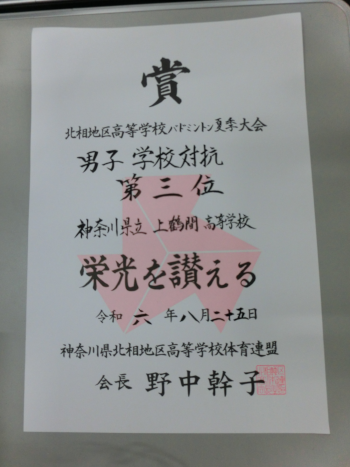 賞
北相地区高等学校バドミントン夏季大会
男子 学校対抗
第三位
神奈川県立 上鶴間 高等学校
栄光を讃える
令和 六 年 八 月 二十五 日
神奈川県北相地区高等学校体育連盟
会長 野中幹子